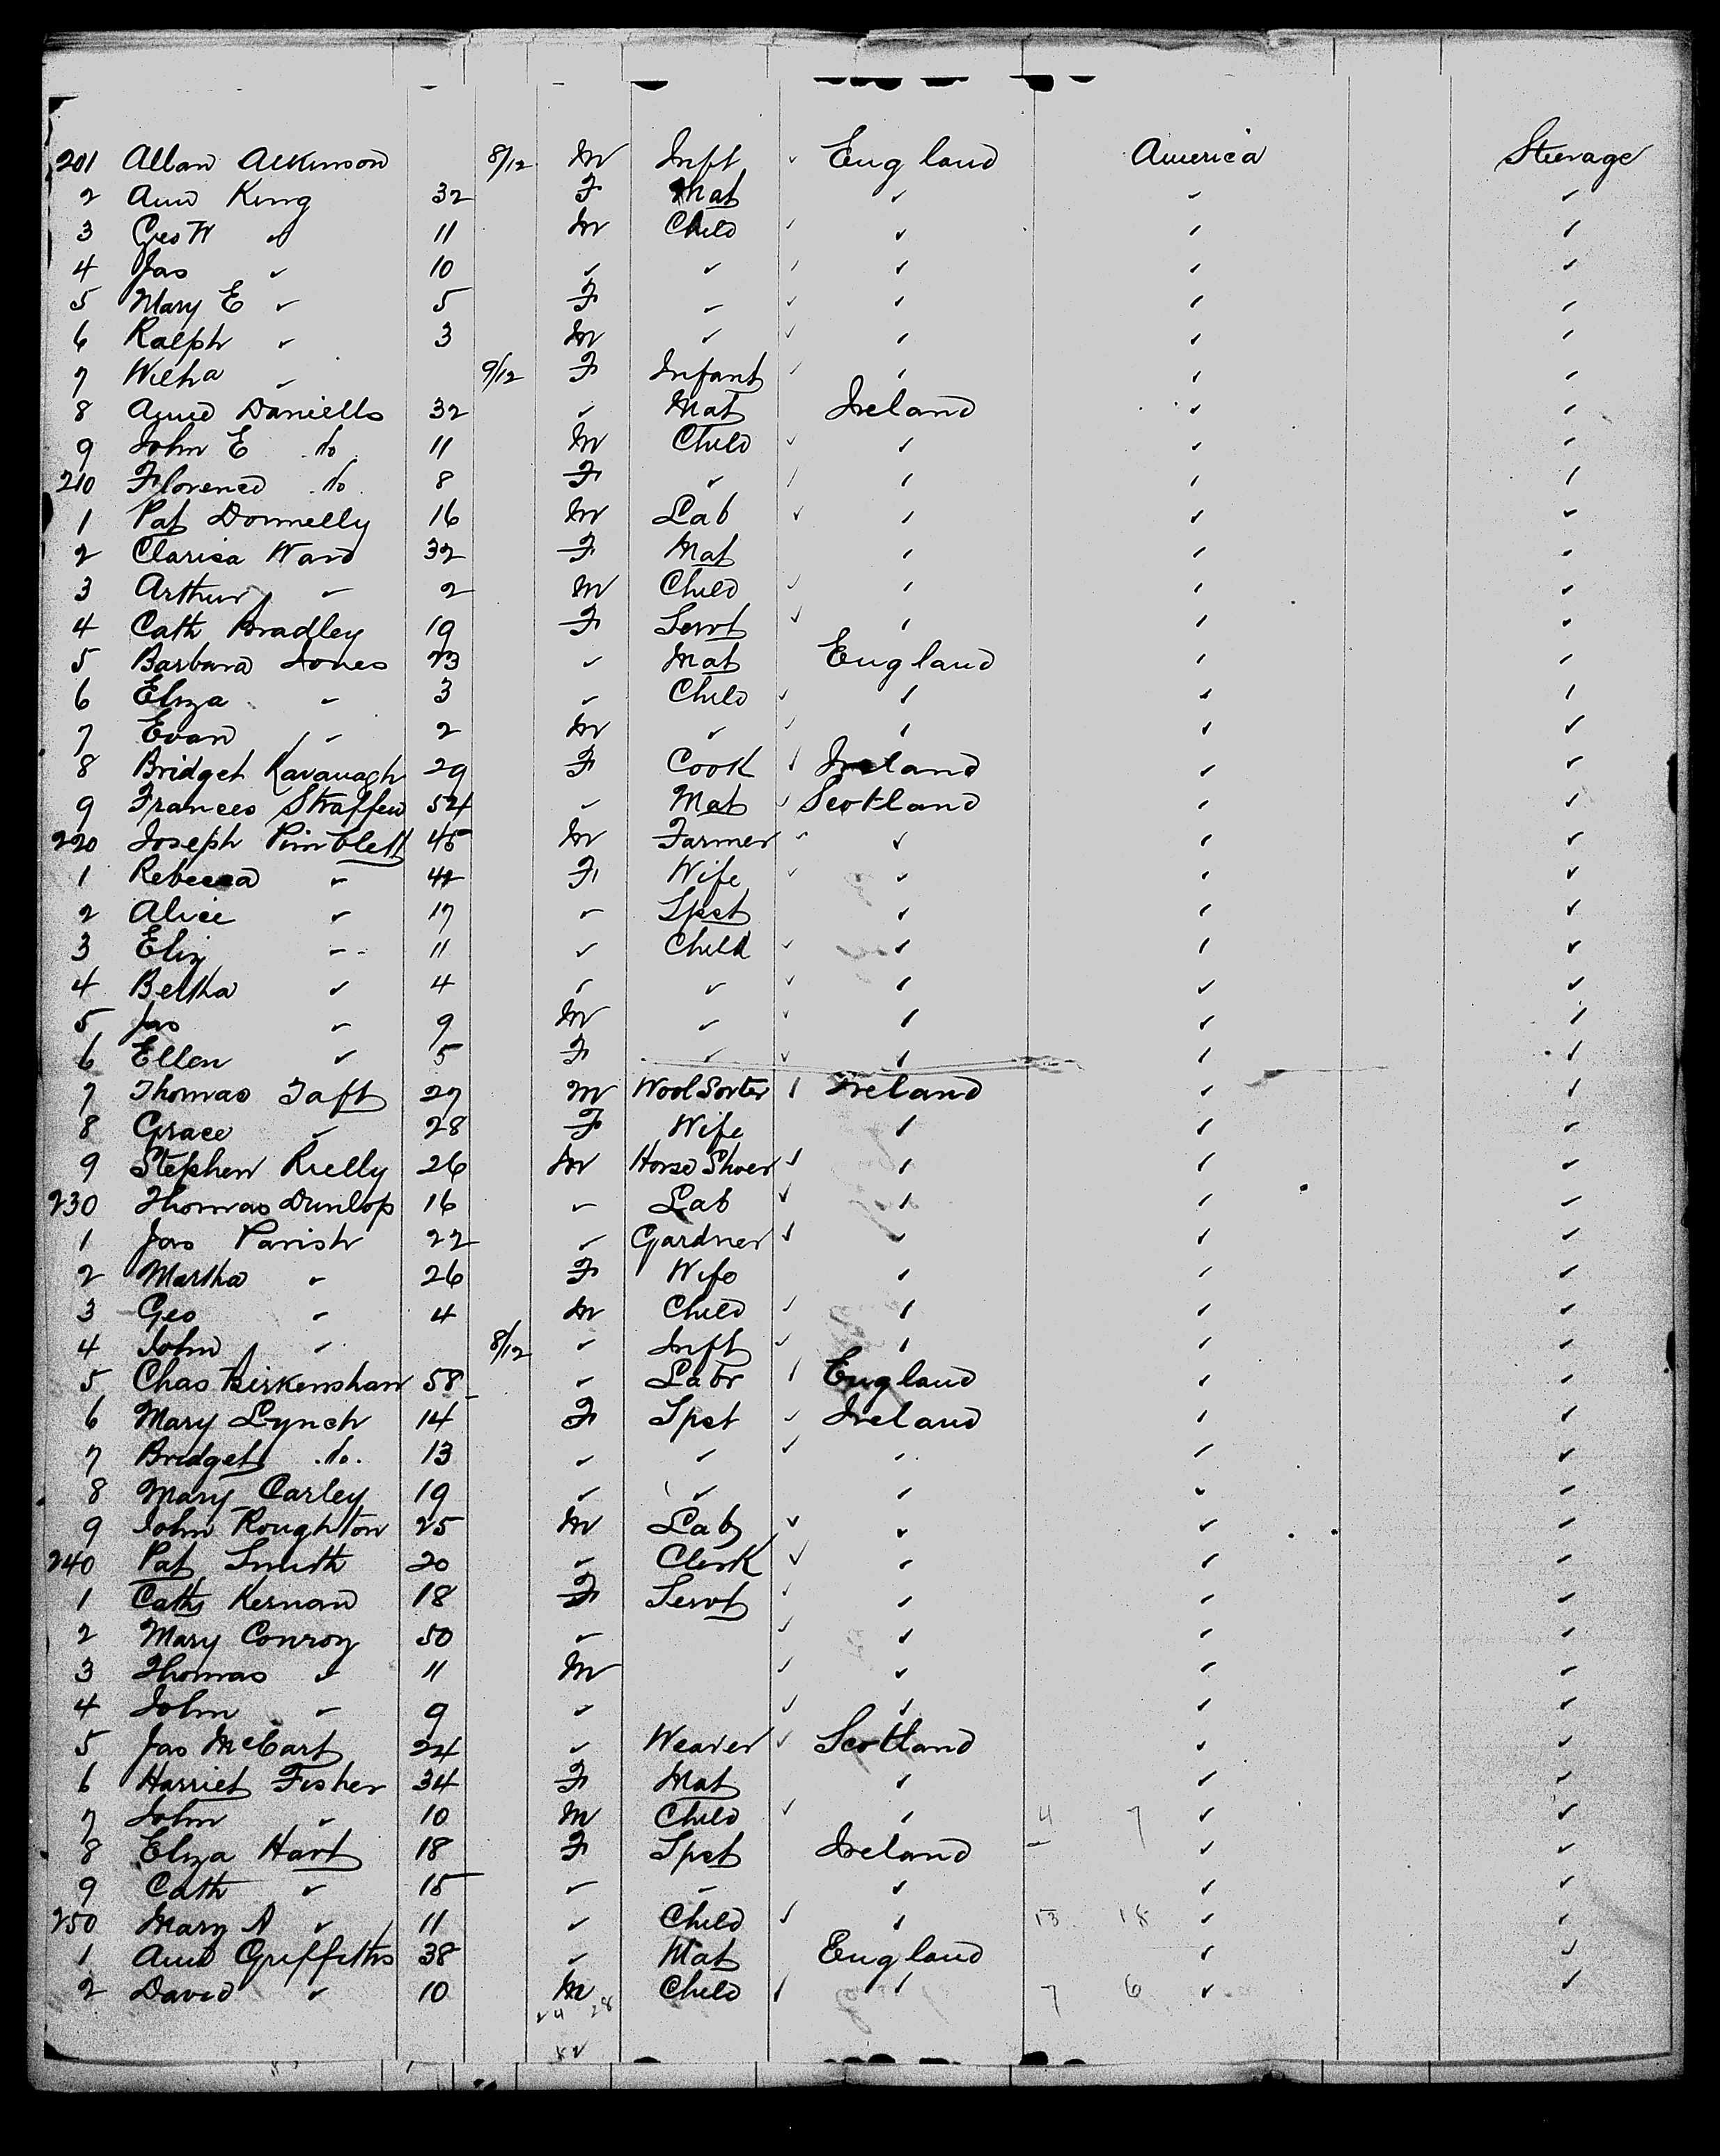 201 Allan Atkinson 8/12 M Inft ✓ England America Steerage
2 Ann King 32 F Mat ✓ ✓ ✓
3 Geo W ✓ 11 M Child ✓ ✓ ✓ ✓
4 Jas ✓ 10 ✓ ✓ ✓ ✓ ✓ ✓
5 Mary E ✓ 5 F ✓ ✓ ✓ ✓ ✓
6 Ralph ✓ 3 M ✓ ✓ ✓ ✓ ✓
7 Wilha ✓ 9/12 F Infant ✓ ✓ ✓ ✓
8 Annie Daniells 32 ✓ Mat Ireland ✓ ✓
9 John E do 11 M Child ✓ ✓ ✓ ✓
210 Florence do 8 F ✓ ✓ ✓ ✓ ✓
1 Pat Donnelly 16 M Lab ✓ ✓ ✓ ✓
2 Clarisa Ward 32 F Mat ✓ ✓ ✓
3 Arthur ✓ 2 M Child ✓ ✓ ✓ ✓
4 Cath Bradley 19 F Servt ✓ ✓ ✓ ✓
5 Barbara Jones 23 ✓ Mat England ✓ ✓
6 Eliza ✓ 3 ✓ Child ✓ ✓ ✓ ✓
7 Evan ✓ 2 M ✓ ✓ ✓ ✓ ✓
8 Bridget Kavanagh 29 F Cook ✓ Ireland ✓ ✓
9 Frances Straffen 54 ✓ Mat ✓ Scotland ✓ ✓
220 Joseph Pimblett 45 M Farmer ✓ ✓ ✓ ✓
1 Rebecca ✓ 42 F Wife ✓ ✓ ✓ ✓
2 Alice ✓ 17 ✓ Spst ✓ ✓ ✓
3 Eliz ✓ 11 ✓ Child ✓ ✓ ✓ ✓
4 Bertha ✓ 4 ✓ ✓ ✓ ✓ ✓ ✓
5 Jas ✓ 9 M ✓ ✓ ✓ ✓ ✓
6 Ellen ✓ 5 F ✓ ✓ ✓ ✓ ✓
7 Thomas Taft 27 M Wool Sorter ✓ Ireland ✓ ✓
8 Grace ✓ 28 F Wife ✓ ✓ ✓
9 Stephen Rielly 26 M Horse Shoer ✓ ✓ ✓ ✓
230 Thomas Dunlop 16 ✓ Lab ✓ ✓ ✓ ✓
1 Jas Parish 22 ✓ Gardner ✓ ✓ ✓ ✓
2 Martha ✓ 26 F Wife ✓ ✓ ✓
3 Geo ✓ 4 M Child ✓ ✓ ✓ ✓
4 John ✓ 8/12 ✓ Inft ✓ ✓ ✓ ✓
5 Chas Birkenshaw 58 ✓ Labr ✓ England ✓ ✓
6 Mary Lynch 14 F Spst ✓ Ireland ✓ ✓
7 Bridget do 13 ✓ ✓ ✓ ✓ ✓ ✓
8 Mary Carley 19 ✓ ✓ ✓ ✓ ✓
9 John Roughton 25 M Lab ✓ ✓ ✓ ✓
240 Pat Smith 20 ✓ Clerk ✓ ✓ ✓ ✓
1 Cath Kernan 18 F Servt ✓ ✓ ✓ ✓
2 Mary Conroy 50 ✓ ✓ ✓ ✓ ✓
3 Thomas ✓ 11 M ✓ ✓ ✓ ✓
4 John ✓ 9 ✓ ✓ ✓ ✓ ✓
5 Jas McCart 24 ✓ Weaver ✓ Scotland ✓ ✓
6 Harriet Fisher 34 F Mat ✓ ✓ ✓
7 John ✓ 10 M Child ✓ ✓ 4 7 ✓ ✓
8 Eliza Hart 18 F Spst Ireland ✓ ✓
9 Cath ✓ 15 ✓ ✓ ✓ ✓ ✓
250 Mary A ✓ 11 ✓ Child ✓ ✓ 13 18 ✓ ✓
1 Ann Griffiths 38 ✓ Mat England ✓ ✓
2 David ✓ 10 M Child ✓ ✓ 7 6 ✓ ✓
24 28
52